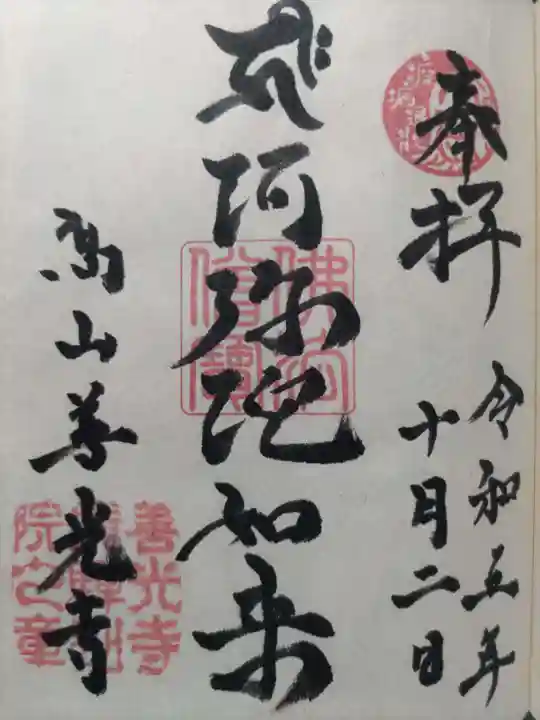 奉拝
令和五年
十月二日
阿弥陀如来
高山善光寺
佛法僧寶
善光寺
院之章